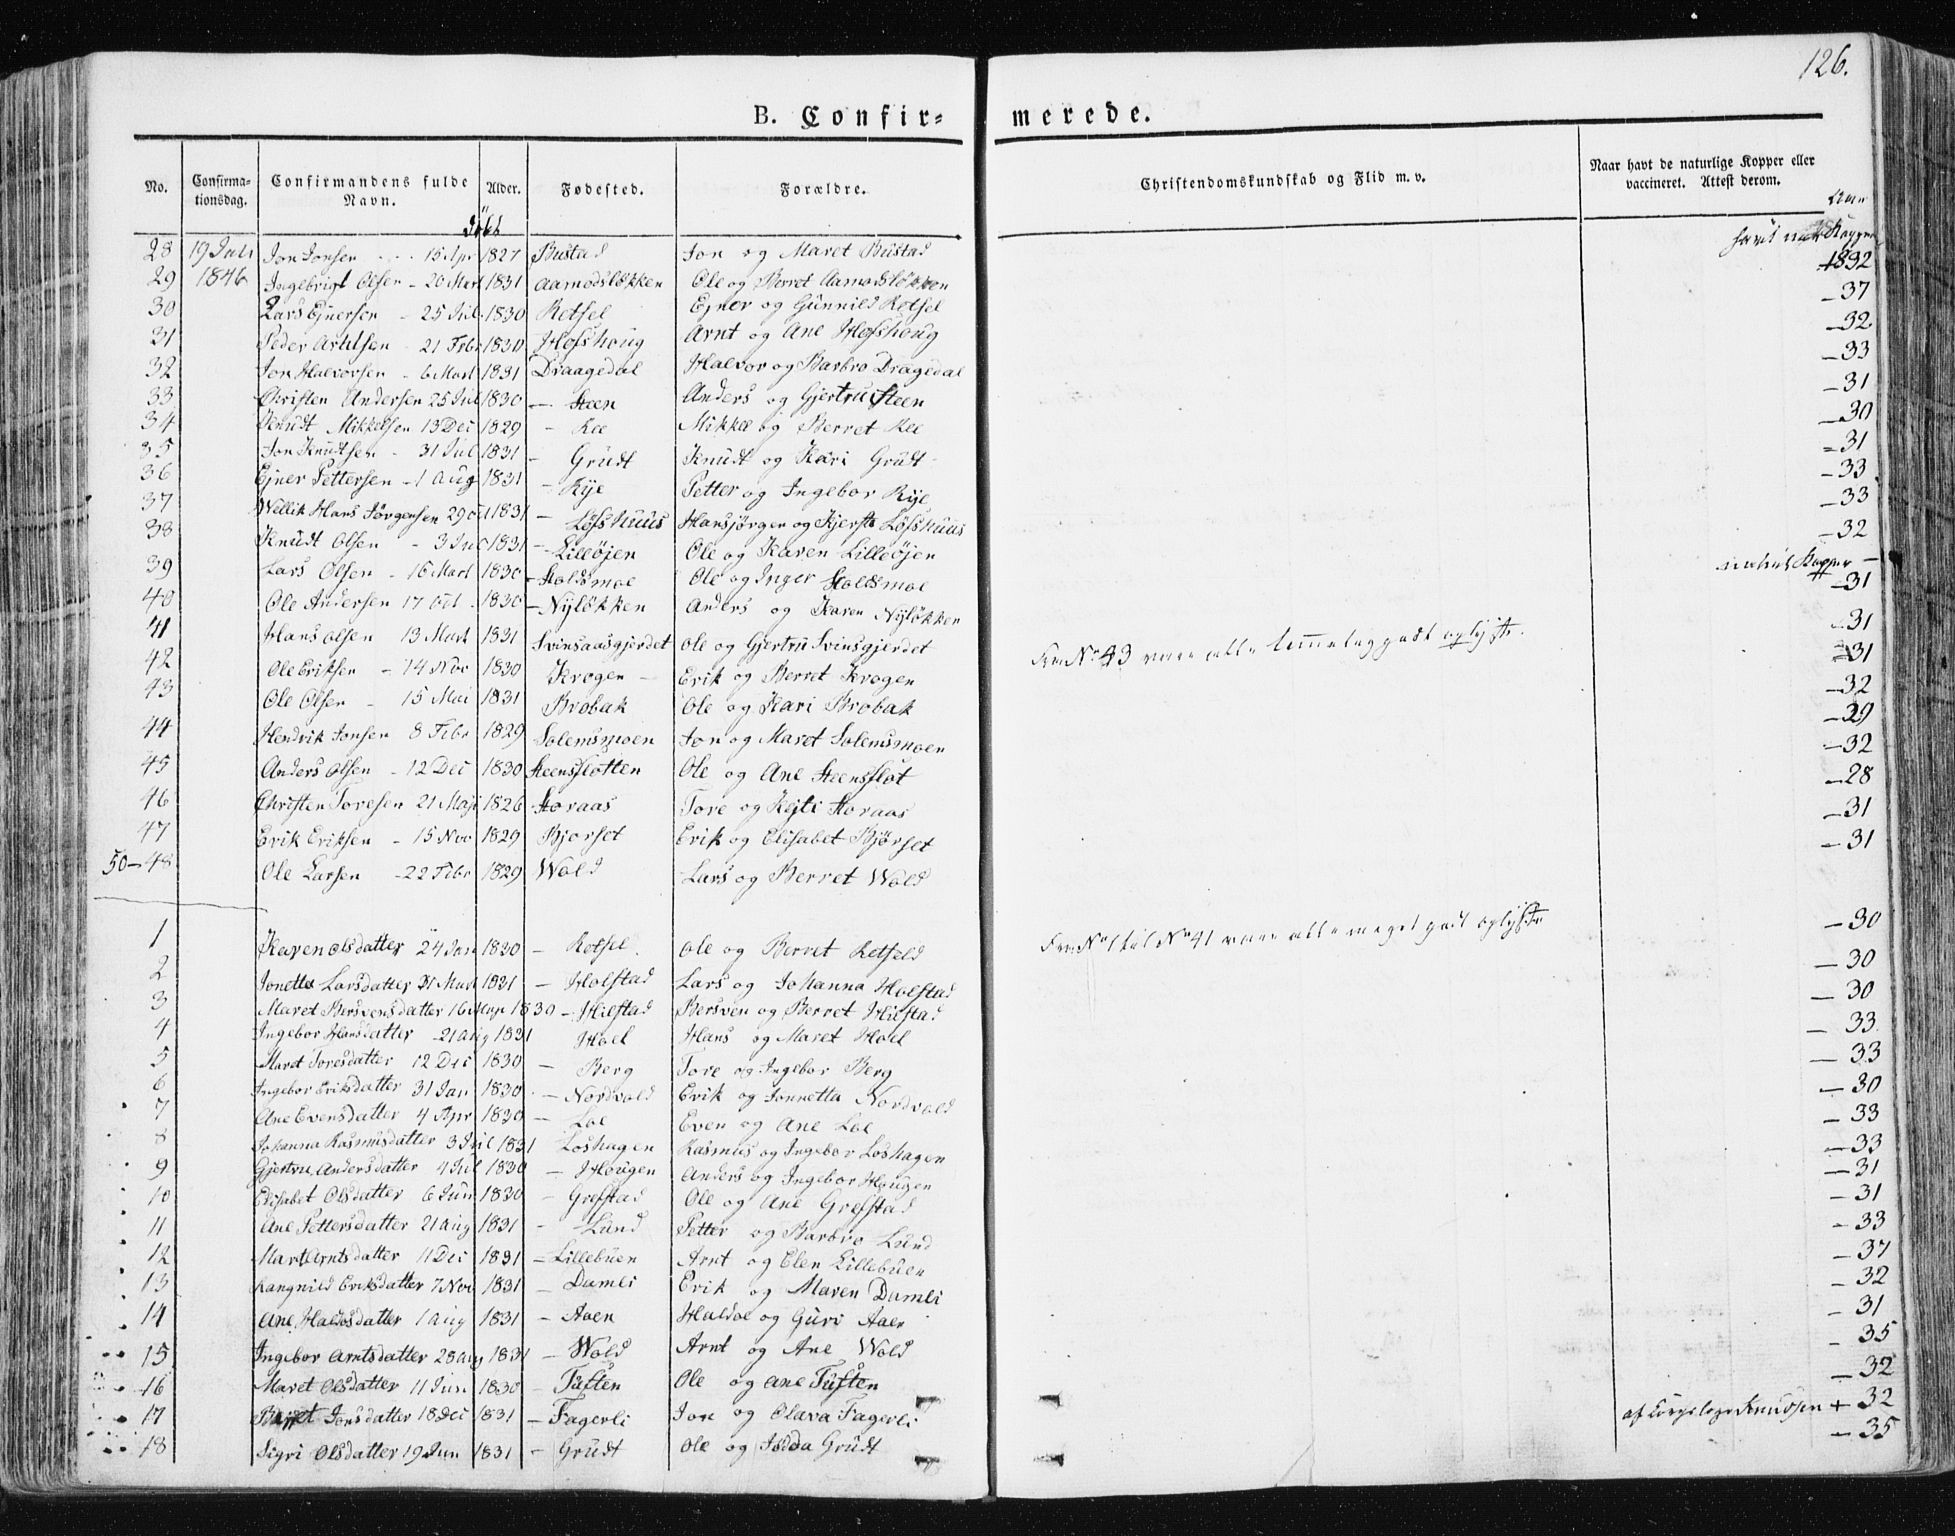 126.
B. Confir= merede.
No. Confirmationsdag. Confirmandens fulde Navn. Alder. Fødested. Forældre. Christendomskundskab og Flid m. v. Naar havt de naturlige Kopper eller vaccineret. Attest derom.
28 19 Juli Jon Jonsen 15 Apr 1827 Bustad Jon og Maret Bustad
29 1846 Ingebrigt Olsen - 20 Mart 1831 Aamodsløkken Ole og Berret Aamodsløkken 1832
30 Lars Ejnersen - 25 Jul 1830 Retsel Ejner og Gunnild Retsel -37
31 Peder Arntsen 21 Febr 1830 Hofshoug Arnt og Ane Hofshoug -32
32 Jon Halvorsen - 6 Mart 1831 Draagedal Halvor og Barbro Dragedal -33
33 Christen Andersen 25 Jul 1830 - Steen Anders og Gjertru Steen -31
34 Knudt Mikkelsen 13 Dec 1829 - Ree Mikkel og Berret Ree -30
35 Jon Knutsen - 31 Jul 1831 - Grudt Knudt og Kari Grudt -31
36 Ejner Pettersen - 1 Aug 1831 - Rye Petter og Ingebor Rye -33
37 Wellik Hans Jørgensen 29 Oct 1831 - Løfshuus Hansjørgen og Kjersti Løfshuus -33
38 Knudt Olsen - 3 Jul 1831 - Lilleøjen Ole og Karen Lilleøjen -32
39 Lars Olsen - 16 Mart 1830 - Stoldsmoe Ole og Inger Stoldsmoe naturl Kopper -
40 Ole Andersen 17 Oct 1830 - Nyløkken Anders og Karen Nyløkken -31
41 Hans Olsen 13 Mart 1831 Svinsaasgjerdet Ole og Gjertru Svinsgjerdet -31
42 Ole Eriksen - 14 Nov 1830 Krogen - Erik og Berret Krogen Fra No 43 vare alle temmelig godt oplyste. -31
43 Ole Olsen - 15 Mai 1831 Brobak Ole og Kari Brobak -32
44 Hendrik Jonsen 8 Febr 1829 Solemsmoen Jon og Maret Solemsmoen -29
45 Anders Olsen - 12 Dec 1830 Steensfletten Ole og Ane Steensflot -32
46 Christen Toresen 21 Maji 1826 Storaas Tore og Kejti Storaas -28
47 Erik Eriksen - 15 Nov 1829 Bjorset Erik og Elisabet Bjørset -31
50-48 Ole Larsen - 22 Febr 1829 Wold Lars og Berret Wold -31
1 Karen Olsdatter 24 Jan 1830 - Retsel Ole og Berret Retseld Fra No 1 til No 41 vare alle meget godt oplyste -30
2 Jonetta Larsdatter 31 Mart 1831 - Holstad Lars og Johanna Holstad -30
3 Maret Bersvensdatter 16 Maji 1830 - Hilstad Bersven og Berret Hilstad -30
4 Ingebor Hansdatter - 21 Aug 1831 Hoel Hans og Maret Hoel -33
5 Maret Toresdatter 12 Dec 1830 - Berg Tore og Ingebor Berg -33
6 Ingebor Eriksdatter 31 Jan 1830 - Nordvold Erik og Jonnetta Nordvold -30
7 Ane Evensdatter 4 Apr 1830 - Loe Even og Ane Loe -33
8 Johanna Rasmusdatter 3 Jul 1831 Loshagen Rasmus og Ingebor Loshagen -33
9 Gjertru Andersdatter 4 Jul 1830 - Hougen Anders og Ingebor Hougen -31
10 Elisabet Olsdatter 6 Jun 1830 - Grefstad Ole og Ane Grefstad -31
11 Ane Pettersdatter 21 Aug 1831 - Lund Petter og Barbro Lund -33
12 Marit Arntsdatter 11 Dec 1831 - Lillebuen Arnt og Elen Lillebuen -37
13 Rangnild Eriksdatter 7 Nov 1831 - Damli Erik og Maren Damli -32
14 Ane Haldosdatter 1 Aug 1831 - Aaen Haldoe og Guri Aaen -31
15 Ingebor Arntsdatter 28 Aug 1831 - Wold Arnt og Ane Wold -35
16 Maret Olsdatter 11 Jun 1830 - Tuften Ole og Ane Tuften -32
17 Berret Jonsdatter 18 Dec 1831 - Fagerli Jon og Olava Fagerli Knudsen + 32
18 Sigri Olsdatter 19 Jun 1831 - Grudt Ole og Jødda Grudt -35